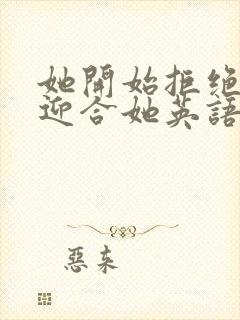 她開始拒絕
迎合她英語
惡来